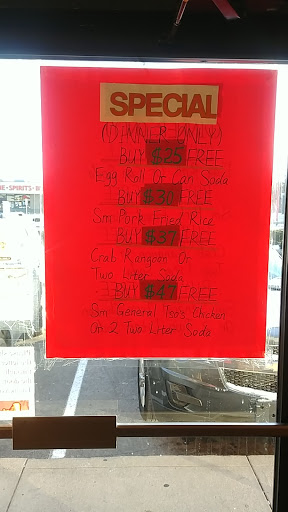 SPECIAL
(DINNER ONLY)
BUY $25 FREE
Egg Roll Or Can Soda
BUY $30 FREE
Sm Pork Fried Rice
BUY $37 FREE
Crab Rangoon Or
Two Liter Soda
BUY $47 FREE
Sm General Tso's Chicken
Or 2 Two Liter Soda